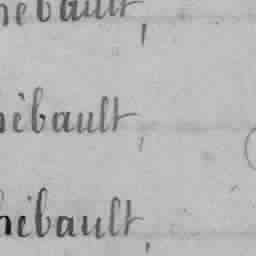 hebault,
hébault,
hébault,